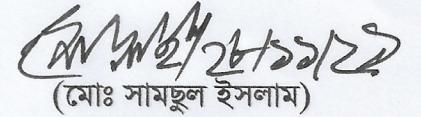 ২৮/১১/২১
(মোঃ সামছুল ইসলাম)